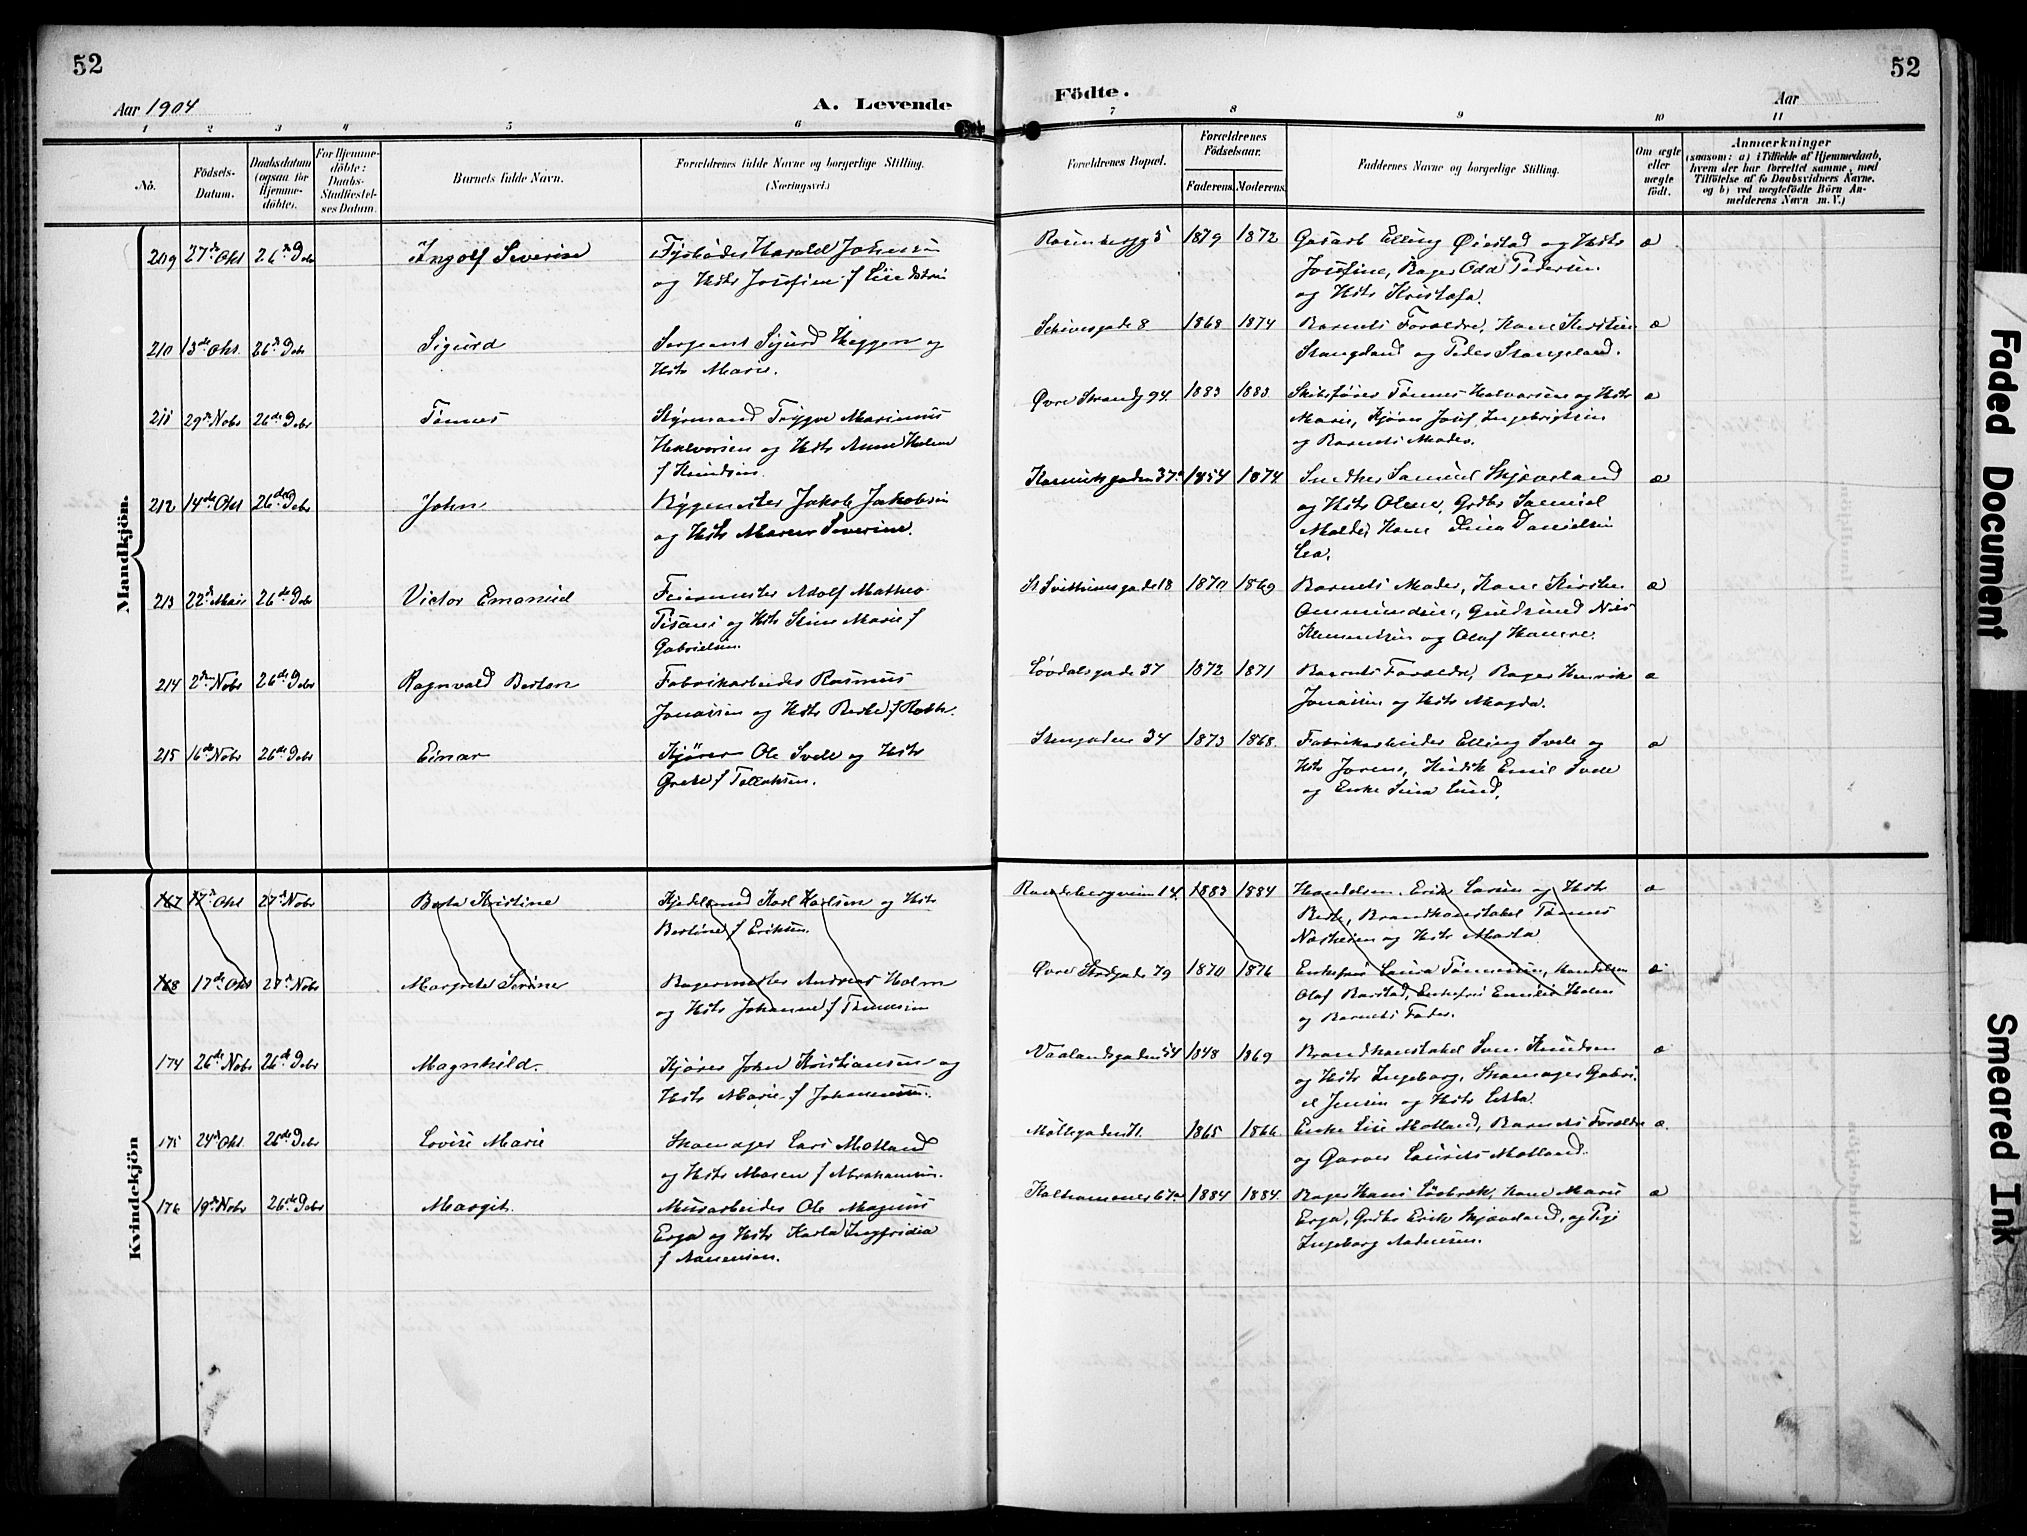 52
52
Aar 1904
A. Levende
Födte.
Aar
1 2 3 4 5 6 7 8 9 10 11
No.
Födsels-
Datum.
Daabsdatum
(ogsaa for
Hjemme-
döbte).
For Hjemme-
döbte:
Daabs-
Stadfæstel-
ses Datum.
Barnets fulde Navn.
Forældrenes fulde Navne og borgerlige Stilling.
(Næringsvei.)
Forældrenes Bopæl.
Forældrenes
Födselsaar.
Faderens. Moderens.
Faddernes Navne og borgerlige Stilling.
Om ægte
eller
uægte
födt.
Anmærkninger
(saasom: a) i Tilfælde af Hjemmedaab,
hvem der har forrettet samme, med
Tilföielse af to Daabsvidners Navne,
og b) ved uægtefödte Börn An-
melderens Navn m. V.)
Mandkjön.
209 27de Okt 26de Debr Ingolf Severin Fyrböder Harald Johnsen
og Hstr Josefine f
Rosenbergg 5 1879 1872 Gasarb Elling Øiestad og Hstr
Josefine, Bager Odd Pedersen
og Hstr Kristofa.
210 13de Okt. 26de Debr Sigurd Sergeant Sigurd Heggen og
Hstr Marie.
Schivesgade 8 1868 1874 Barnets Forældre, Kone Kirstine
Stangeland og Peder Stangeland.
211 29de Nobr 26de Debr Tønnes Styrmand Trygve Marinius
Halvorsen og Hstr Anne Helene
f Knudsen
Øvre Strandg 94. 1883 1883. Skibsfører Tønnes Halvorsen og Hstr
Marie, Kjører Josef Ingebrigtsen
og Barnets Moder.
212 14de Okt 26de Debr John Bygmester Jakob Jakobsen
og Hstr Maren Severine.
Karmutsgaden 37a 1854 1874 Snedker Samuel Skjæveland
og Hstr Oline, Grdbr Samuel
Molde, Kone Lina Danielsen
Lea.
213 22de Mars 26de Debr Victor Emanuel Feiermester Adolf Matheo
Tisani og Hstr Stine Marie f
Gabrielsen.
St Svithunsgade 18 1870 1869 Barnets Moder, Kone Kirsten
Ommundsen, Gudmund Nils
Klemmetsen og Olaf Hamre.
214 2den Nobr 26de Debr Ragnvald Bertan Fabrikarbeider Rasmus
Jonassen og Hstr Berthe f Roth.
Løvdalsgade 37 1872 1871 Barnets Forældre, Bager Henrik
Jonassen og Hstr Magda.
215 16de Nobr 26de Debr Einar Kjører Ole Svele og Hstr
Grethe f Tollaksen.
Stengaden 34 1873 1868. Fabrikarbeider Elling Svele og
Hstr Jorene, Hendrik Emil Svele
og Enke Sina Lund.
Kvindekjön
167 17de Okt 27de Nobr Berta Kristine Kjedelsmed Karl Karlsen og Hstr
Bertine f Eriksen.
Randebergveien 14. 1883 1884 Handelsm. Erik Larsen og Hstr
Berte, Brandkonstabel Tønnes
Nærheim og Hstr Marta
168 17de Okt 27de Nobr Margrete Sirine Bagermester Andreas Holm
og Hstr Johanne f Tønnesen
Øvre Strdgade 79 1870 1876 Enkefru Laura Tønnesen, Handelsm
Olaf Barstad, Enkefru Emilie Holm
og Barnets Fader.
174 26de Nobr 26de Debr Magnhild. Kjører John Kristiansen og
Hstr Marie f Johannesen.
Vaalandsgaden 54 1848 1869 Brandkonstabel Sven Knudsen
og Hstr Ingeborg, Skomager Gabri-
el Jensen og Hstr Lette.
175 24de Okt. 26de Debr Lovise Marie Skomager Lars Motland
og Hstr Maren f Abrahamsen.
Møllegaden 71. 1865 1866 Enke Lise Motland, Barnets Forældre
og Garver Laurits Motland.
176 19de Nobr 26de Debr Margit. Murarbeider Ole Magnus
Erga og Hstr Karla Ingfridia
f Aanensen.
Kalhammer 67a 1884 1884. Bager Hans Løebrek, Kone Marie
Erga, Grdbr Erik Skjæveland, og Pige
Ingeborg Aadnesen.
Faded Document
Smeared Ink